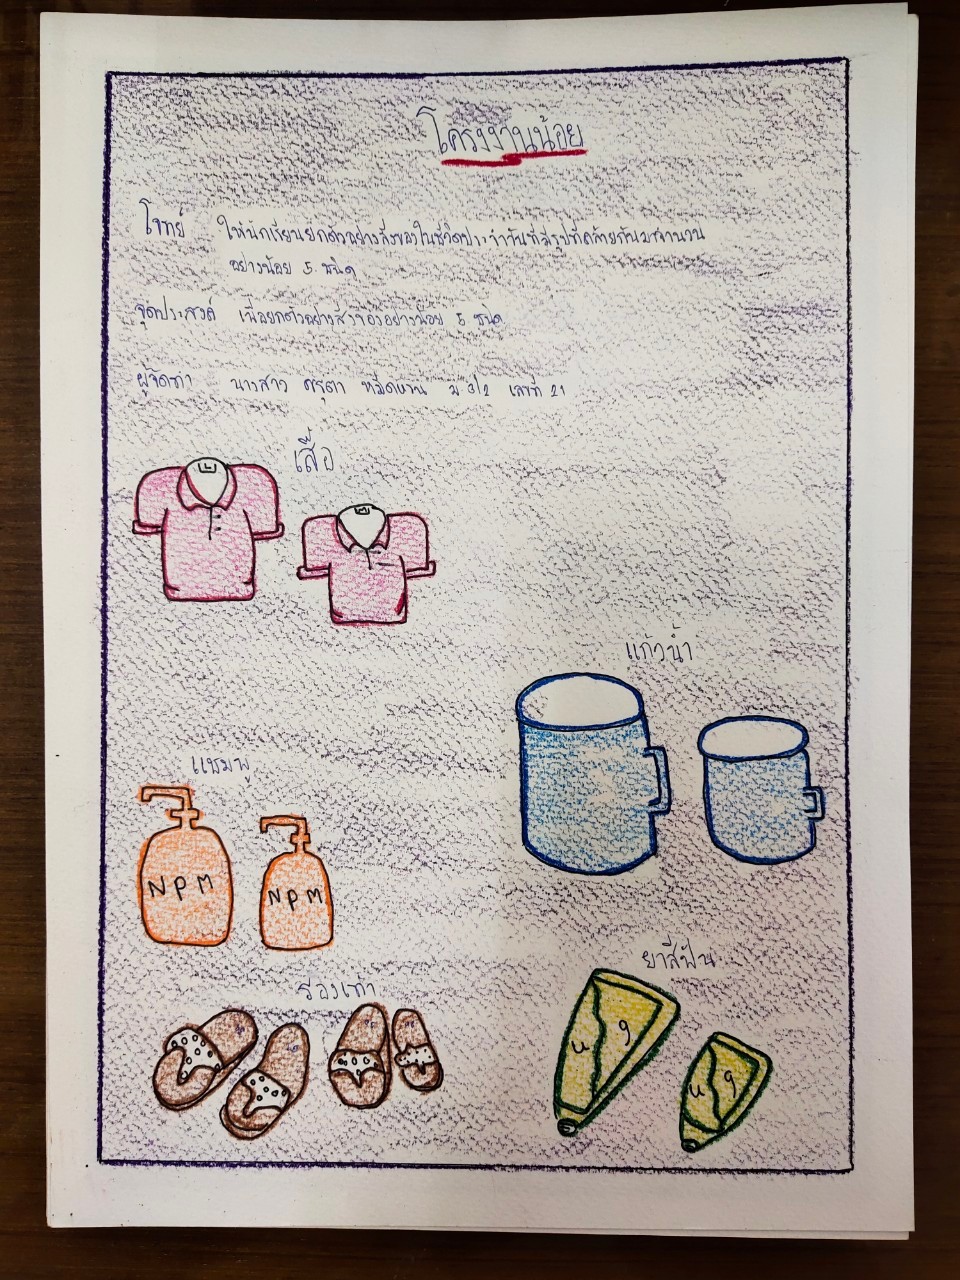 โครงงานน้อย
โจทย์ ให้นักเรียนยกตัวอย่างสิ่งของในชีวิตประจำวันที่มีรูปที่คล้ายกันมาจำนวน
อย่างน้อย 5 ชนิด
จุดประสงค์ เพื่อยกตัวอย่าง อย่างน้อย 5 ชนิด
ผู้จัดทำ นางสาว ม 3/2 เลขที่ 21
เสื้อ
แก้วน้ำ
แชมพู
NPM
NPM
ยาสีฟัน
รองเท้า